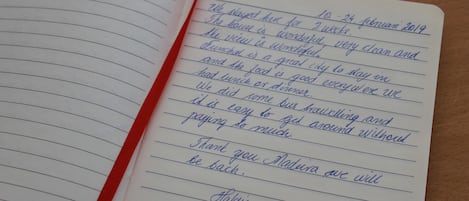 We stayed here for 2 weeks. 10-24 februari 2019
The house is wonderful, very clean and
the view is wonderful.
Funchal is a great city to stay in
and the food is good everywhere we
had lunch or dinner.
We did some bus travelling and
it is easy to get around without
paying to much
Thank you Madeira we will
be back.